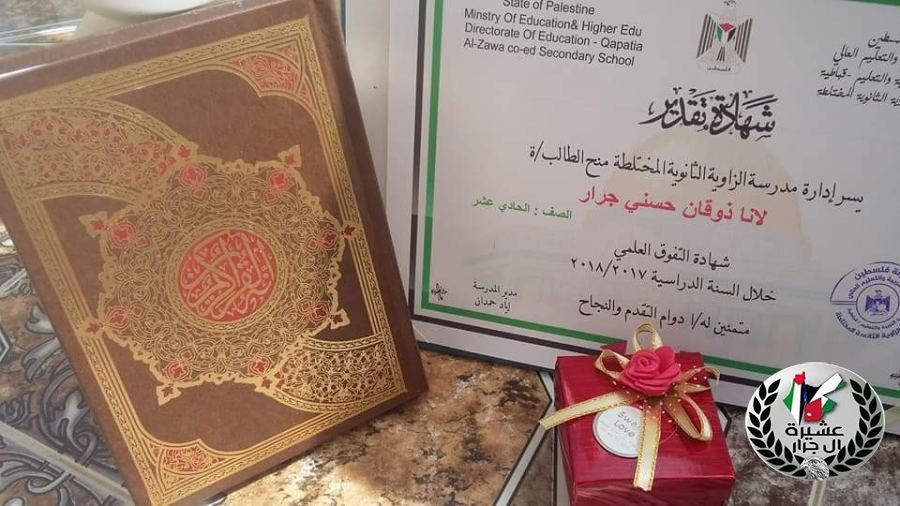 State of Palestine
Minstry Of Education& Higher Edu
Directorate Of Education - Qapatia
Al-Zawa co-ed Secondary School
فلسطين
والتعليم العالي
والتعليم -قباطية
الثانوية المختلطة
فلسطين
شهادة تقدير
يسر إدارة مدرسة الزاوية الثانوية المختلطة منح الطالب/ة
لانا ذوقان حسني جرار
الصف : الحادي عشر
شهادة التفوق العلمي
خلال السنة الدراسية ٢٠١٨/٢٠١٧
متمنين له/ا دوام التقدم والنجاح
مدير المدرسة
إياد حمدان
القرآن الكريم
Sweet
Love
عشيرة
ال جرار